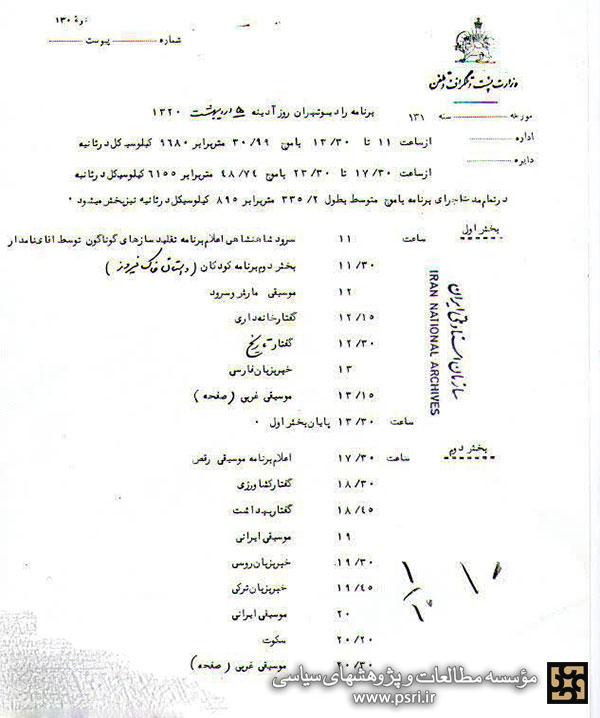 نمرهٔ ۱۳۰
شماره ــــــــ پیوست ــــــــ
وزارت پست و تلگراف و تلفن
مورخه ــــــــ سنه ۱۳۱
اداره ــــــــ
دایره ــــــــ
برنامه رادیوتهران روز آدینه ۵ اردیبهشت ۱۳۲۰
ازساعت ۱۱ تا ۱۳/۳۰ باموج ۳۰/۹۹ متربرابر ۹۶۸۰ کیلوسیکل درثانیه
ازساعت ۱۷/۳۰ تا ۲۳/۳۰ باموج ۴۸/۷۴ متربرابر ۶۱۵۵ کیلوسیکل درثانیه
درتمام مدت اجرای برنامه باموج متوسط بطول ۳۳۵/۲ متربرابر ۸۹۵ کیلوسیکل درثانیه نیزپخش میشود .
بخش اول
ساعت ۱۱ سرود شاهنشاهی اعلام برنامه تقلید سازهای گوناگون توسط اقای نامدار
۱۱/۳۰ بخش دوم برنامه کودکان ( داستان خاک فیروز )
۱۲ موسیقی مارش وسرود
۱۲/۱۵ گفتارخانه داری
۱۲/۳۰ گفتار تاریخ
۱۳ خبربزبان فارسی
۱۳/۱۵ موسیقی غربی ( صفحه )
ساعت ۱۳/۳۰ پایان بخش اول .
بخش دوم
ساعت ۱۷/۳۰ اعلام برنامه موسیقی رقص
۱۸/۳۰ گفتارکشاورزی
۱۸/۴۵ گفتاربهداشت
۱۹ موسیقی ایرانی
۱۹/۳۰ خبربزبان روسی
۱۹/۴۵ خبربزبان ترکی
۲۰ موسیقی ایرانی
۲۰/۲۰ سکوت
۲۰/۳۰ موسیقی غربی ( صفحه )
سازمان اسناد ملی ایران
IRAN NATIONAL ARCHIVES
مؤسسه مطالعات و پژوهشهای سیاسی
www.psri.ir